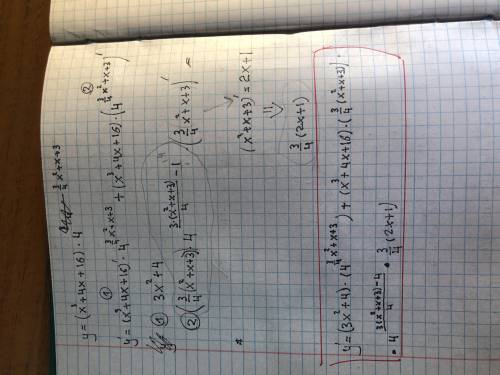 y = (x³+4x+16) · 4^{3/4 x²+x+3}
① ②
y' = (x³+4x+16)' · 4^{3/4 x²+x+3} + (x³+4x+16) · (4^{3/4 x²+x+3})'
① 3x²+4
② (3/4 (x²+x+3) · 4^{3·(x²+x+3)/4 - 1} · (3/4 x²+x+3)' =
(x²+x+3)' = 2x+1
⇓
3/4 (2x+1)
*
y' = (3x²+4) · (4^{3/4 x²+x+3}) + (x³+4x+16) · (3/4 (x²+x+3)) ·
· 4^{3(x²+x+3)-4 / 4} · 3/4 (2x+1)